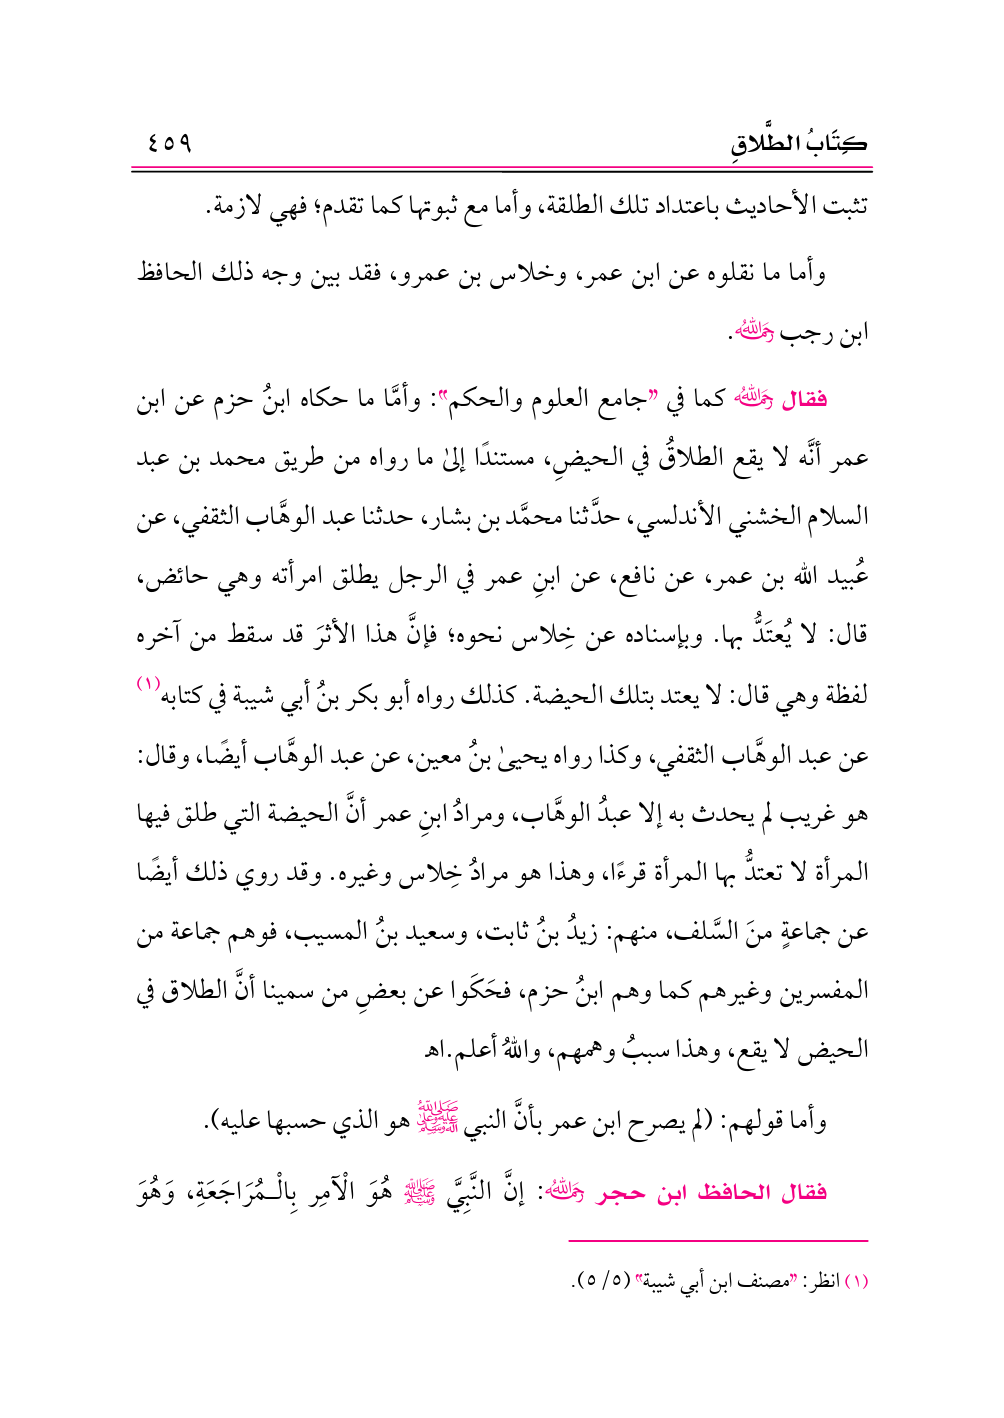 كِتَابُ الطَّلاقِ ٤٥٩
تثبت الأحاديث باعتداد تلك الطلقة، وأما مع ثبوتها كما تقدم؛ فهي لازمة.
وأما ما نقلوه عن ابن عمر، وخلاس بن عمرو، فقد بين وجه ذلك الحافظ
ابن رجب رحمه الله.
فقال رحمه الله كما في "جامع العلوم والحكم": وأمَّا ما حكاه ابنُ حزم عن ابن
عمر أنَّه لا يقع الطلاقُ في الحيضِ، مستندًا إلىٰ ما رواه من طريق محمد بن عبد
السلام الخشني الأندلسي، حدَّثنا محمَّد بن بشار، حدثنا عبد الوهَّاب الثقفي، عن
عُبيد الله بن عمر، عن نافع، عن ابنِ عمر في الرجل يطلق امرأته وهي حائض،
قال: لا يُعتَدُّ بها. وبإسناده عن خِلاس نحوه؛ فإنَّ هذا الأثرَ قد سقط من آخره
لفظة وهي قال: لا يعتد بتلك الحيضة. كذلك رواه أبو بكر بنُ أبي شيبة في كتابه(١)
عن عبد الوهَّاب الثقفي، وكذا رواه يحيىٰ بنُ معين، عن عبد الوهَّاب أيضًا، وقال:
هو غريب لم يحدث به إلا عبدُ الوهَّاب، ومرادُ ابنِ عمر أنَّ الحيضة التي طلق فيها
المرأة لا تعتدُّ بها المرأة قرءًا، وهذا هو مرادُ خِلاس وغيره. وقد روي ذلك أيضًا
عن جماعةٍ منَ السَّلف، منهم: زيدُ بنُ ثابت، وسعيد بنُ المسيب، فوهم جماعة من
المفسرين وغيرهم كما وهم ابنُ حزم، فحَكَوا عن بعضِ من سمينا أنَّ الطلاق في
الحيض لا يقع، وهذا سببُ وهمهم، واللهُ أعلم.اهـ
وأما قولهم: (لم يصرح ابن عمر بأنَّ النبي ﷺ هو الذي حسبها عليه).
فقال الحافظ ابن حجر رحمه الله: إنَّ النَّبِيَّ ﷺ هُوَ الْآمِر بِالْـمُرَاجَعَةِ، وَهُوَ
(١) انظر: "مصنف ابن أبي شيبة" (٥/ ٥).